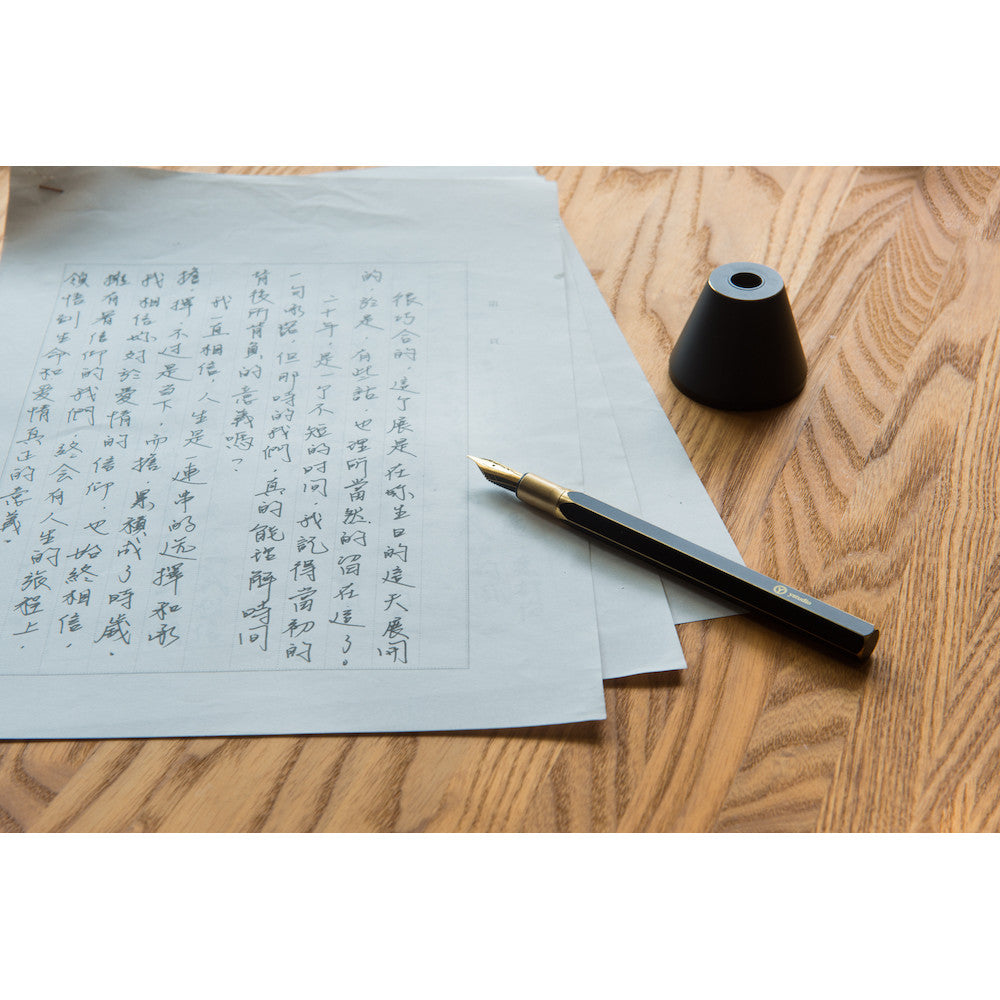 第 頁
很巧合的，這個展是在你生日的這天展開
的，於是，有些話，也理所當然的留在這了。
二十年，是一個不短的时间，我記得當初的
一句承諾，但那時的我們，真的能瞭解時間
背後所背負的意義嗎？
我一直相信，人生是一連串的选擇和承
擔，擇，不过是当下，而擔，累積成了時歲，
我相信妳对於愛情的信仰，也始終相信，
擁有着信仰的我們，終会有人生的旅程上，
領悟到生命和爱情真正的意義。
ystudio